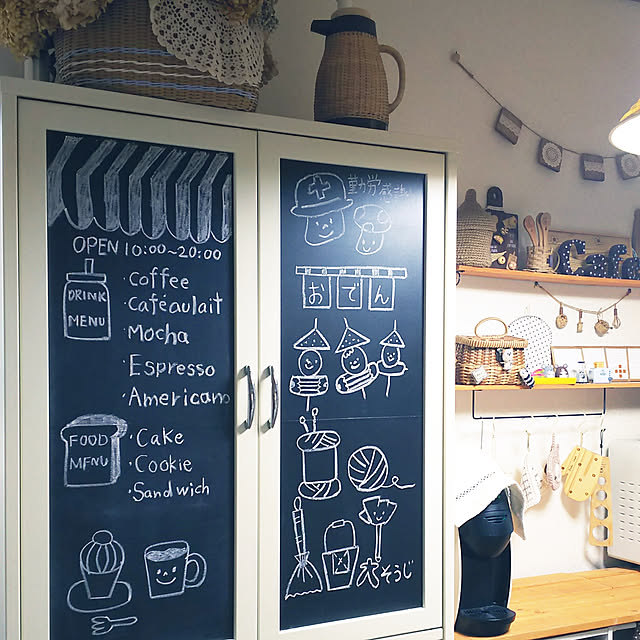 OPEN 10:00~20:00
DRINK
MENU
・Coffee
・Caféaulait
・Mocha
・Espresso
・Americano
FOOD
MENU
・Cake
・Cookie
・Sandwich
勤労感謝
おでん
大そうじ